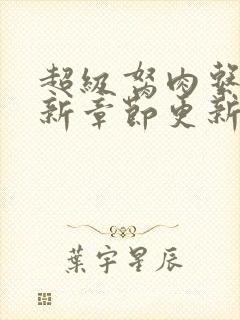 超級努肉繫
新章節更新
葉宇星辰